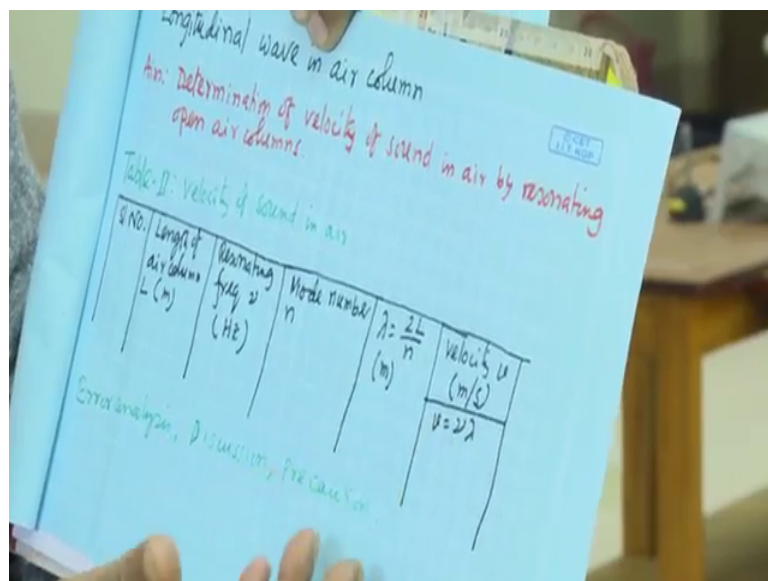 Longitudinal wave in air column
Aim: Determination of velocity of sound in air by resonating
open air columns.
Table-II: Velocity of sound in air
Sl No.
Length of
air column
L (m)
Resonating
freq ν
(Hz)
Mode number
n
λ = 2L/n
(m)
velocity v
(m/s)
v = νλ
Error analysis, Discussion, Precaution.